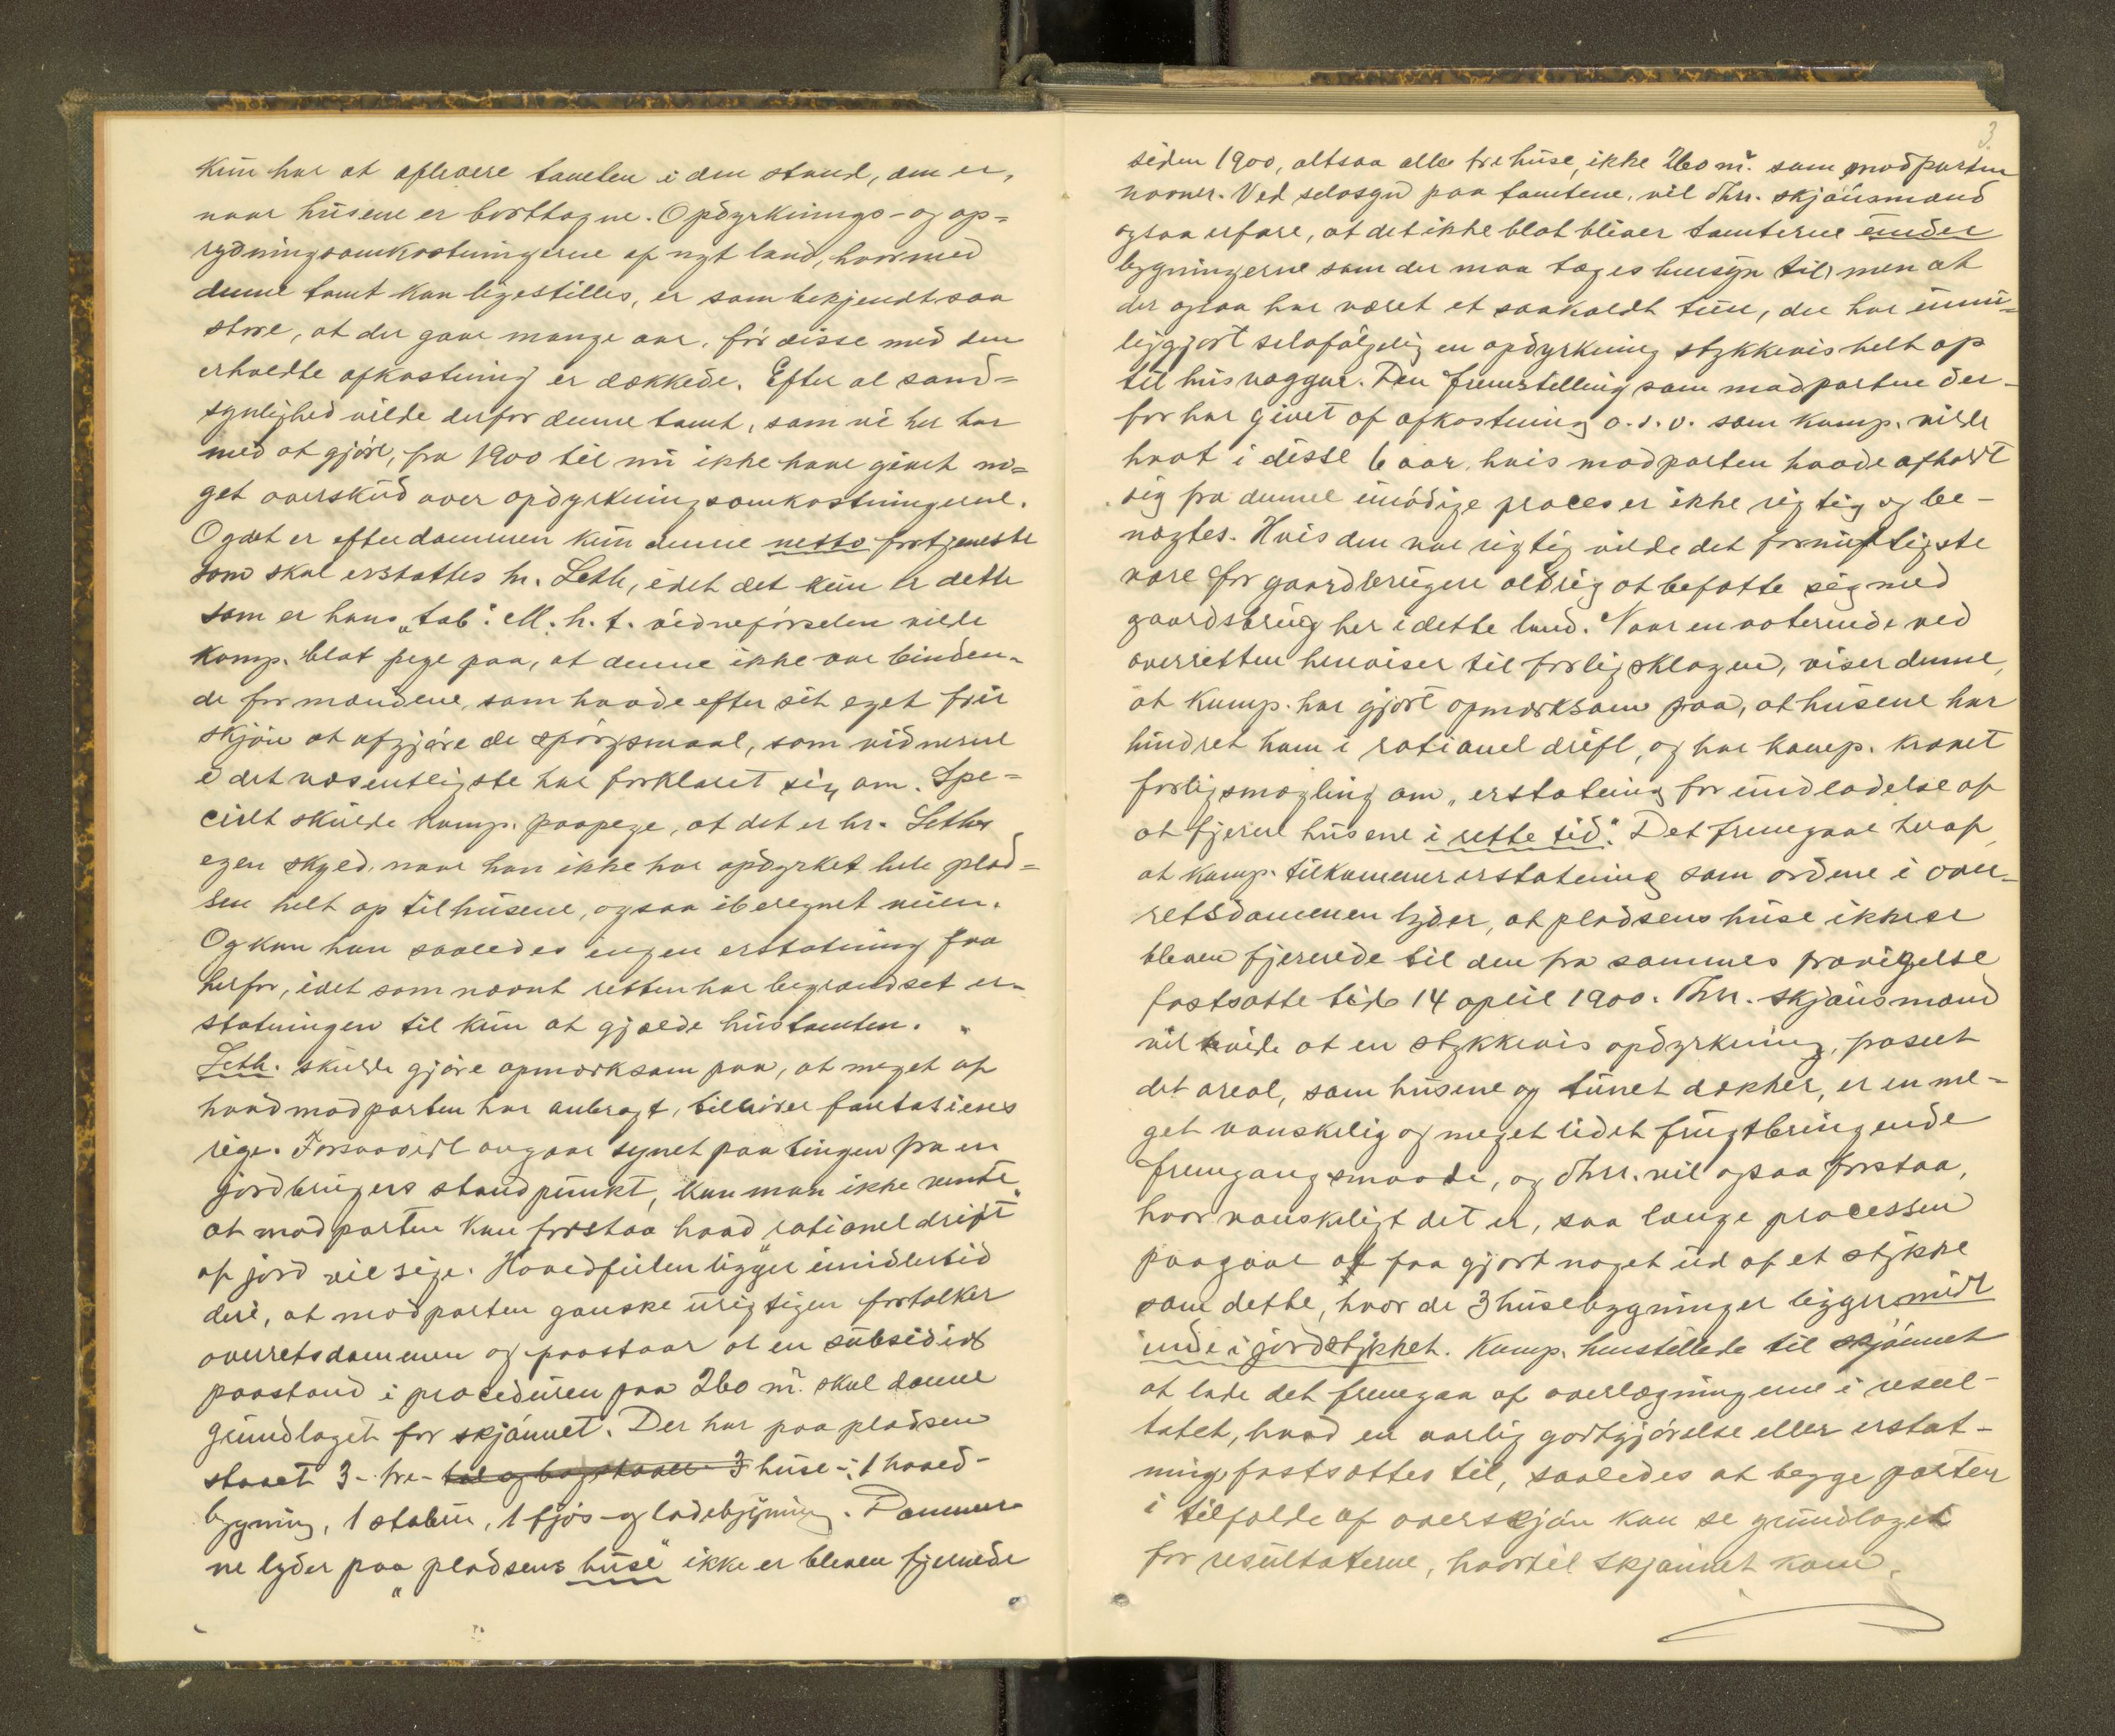 kun har at aflevere tomten i den stand, den er,
naar husene er borttagne. Opdyrknings- og op=
rydningsomkostningerne af nyt land, hvormed
denne tomt kan ligestilles, er som bekjendt saa
store, at der gaar mange aar, før disse med den
erholdte afkastning er dækkede. Efter al sand=
synlighed vilde derfor denne tomt, som vi her har
med at gjøre, fra 1900 til nu ikke have givet no=
get overskud over opdyrkningsomkostningerne.
Og det er efter dommen kun denne netto fortjeneste
som skal erstattes hr. Leth, idet det kun er dette
som er hans „tab“. M. h. t. vidneførselen vilde
komp. blot pege paa, at denne ikke var binden-
de for mændene, som havde efter sit eget frie
skjøn at afgjøre de spørgsmaal, som vidnerne
i det væsentligste har forklaret sig om. Spe=
cielt skulde komp. paapege, at det er hr. Leths
egen skyld, naar han ikke har opdyrket hele plad=
sen helt op til husene, ogsaa iberegnet veien.
Og kan han saaledes ingen erstatning faa
herfor, idet som nævnt retten har begrændset er-
statningen til kun at gjælde hustomten.
Leth. skulde gjøre opmærksom paa, at meget af
hvad modparten har anbragt, tilhører fantasiens
rige. Forsaavidt angaar synet paa tingen fra en
jordbrugers standpunkt, kan man ikke vente
at modparten kan forstaa hvad „rationel drift“
af jord vil sige. Hovedfeilen ligger imidlertid
deri, at modparten ganske urigtigen fortolker
overretsdommen og paastaar at en subsidiær
paastand i proceduren paa 260 m². skal danne
grundlaget for skjønnet. Der har paa pladsen
staaet 3-tre- tal og bogstaver 3 huse -: 1 hoved-
bygning, 1 stabur, 1 fjøs- og ladebygning. Dommer-
ne lyder paa „pladsens huse“ ikke er bleven fjernede
3
siden 1900, altsaa alle tre huse, ikke 260 m². som modparten
nævner. Ved selvsyn paa tomtene, vil dhrr. skjønsmænd
ogsaa erfare, at det ikke blot bliver tomterne under
bygningerne som der maa tages hensyn til, men at
der ogsaa har været et saakaldt tun, der har umu-
liggjort selvfølgelig en opdyrkning stykkevis helt op
til husvægger. Den fremstilling som modparten der-
for har givet af afkastning o.s.v. som komp. vilde
havt i disse 6 aar, hvis modparten havde afholdt
sig fra denne unødige proces er ikke rigtig og be-
nægtes. Hvis den var rigtig vilde det fornuftigste
være for gaardbrugere aldrig at befatte sig med
gaardsbrug her i dette land. Naar en voterende ved
overretten henviser til forligsklagen, viser denne,
at komp. har gjort opmærksom paa, at husene har
hindret ham i rationel drift, og har komp. krævet
forligsmægling om „erstatning for undladelse af
at fjerne husene i rette tid“. Det fremgaar heraf,
at komp. tilkommer erstatning som ordene i over-
retsdommen lyder, at pladsens huse ikke er
bleven fjernede til den fra sammes fravigelse
fastsatte tid 14 april 1900. Dhrr. skjønsmænd
vil vide at en stykkevis opdyrkning, paa et
det areal, som husene og tunet dækker, er en me-
get vanskelig og meget lidet frugtbringende
fremgangsmaade, og dhrr. vil ogsaa forstaa,
hvor vanskeligt det er, saa længe processen
paagaar at faa gjort noget ud af et stykke
som dette, hvor de 3 husebygninger ligger midt
inde i jordstykket. Komp. henstillede til skjønnet
at lade det fremgaa af overlægningerne i resul-
tatet, hvad en aarlig godtgjørelse eller erstat-
ning fastsættes til, saaledes at begge parter
i tilfælde af overskjøn kan se grundlaget
for resultaterne, hvortil skjønnet kom.